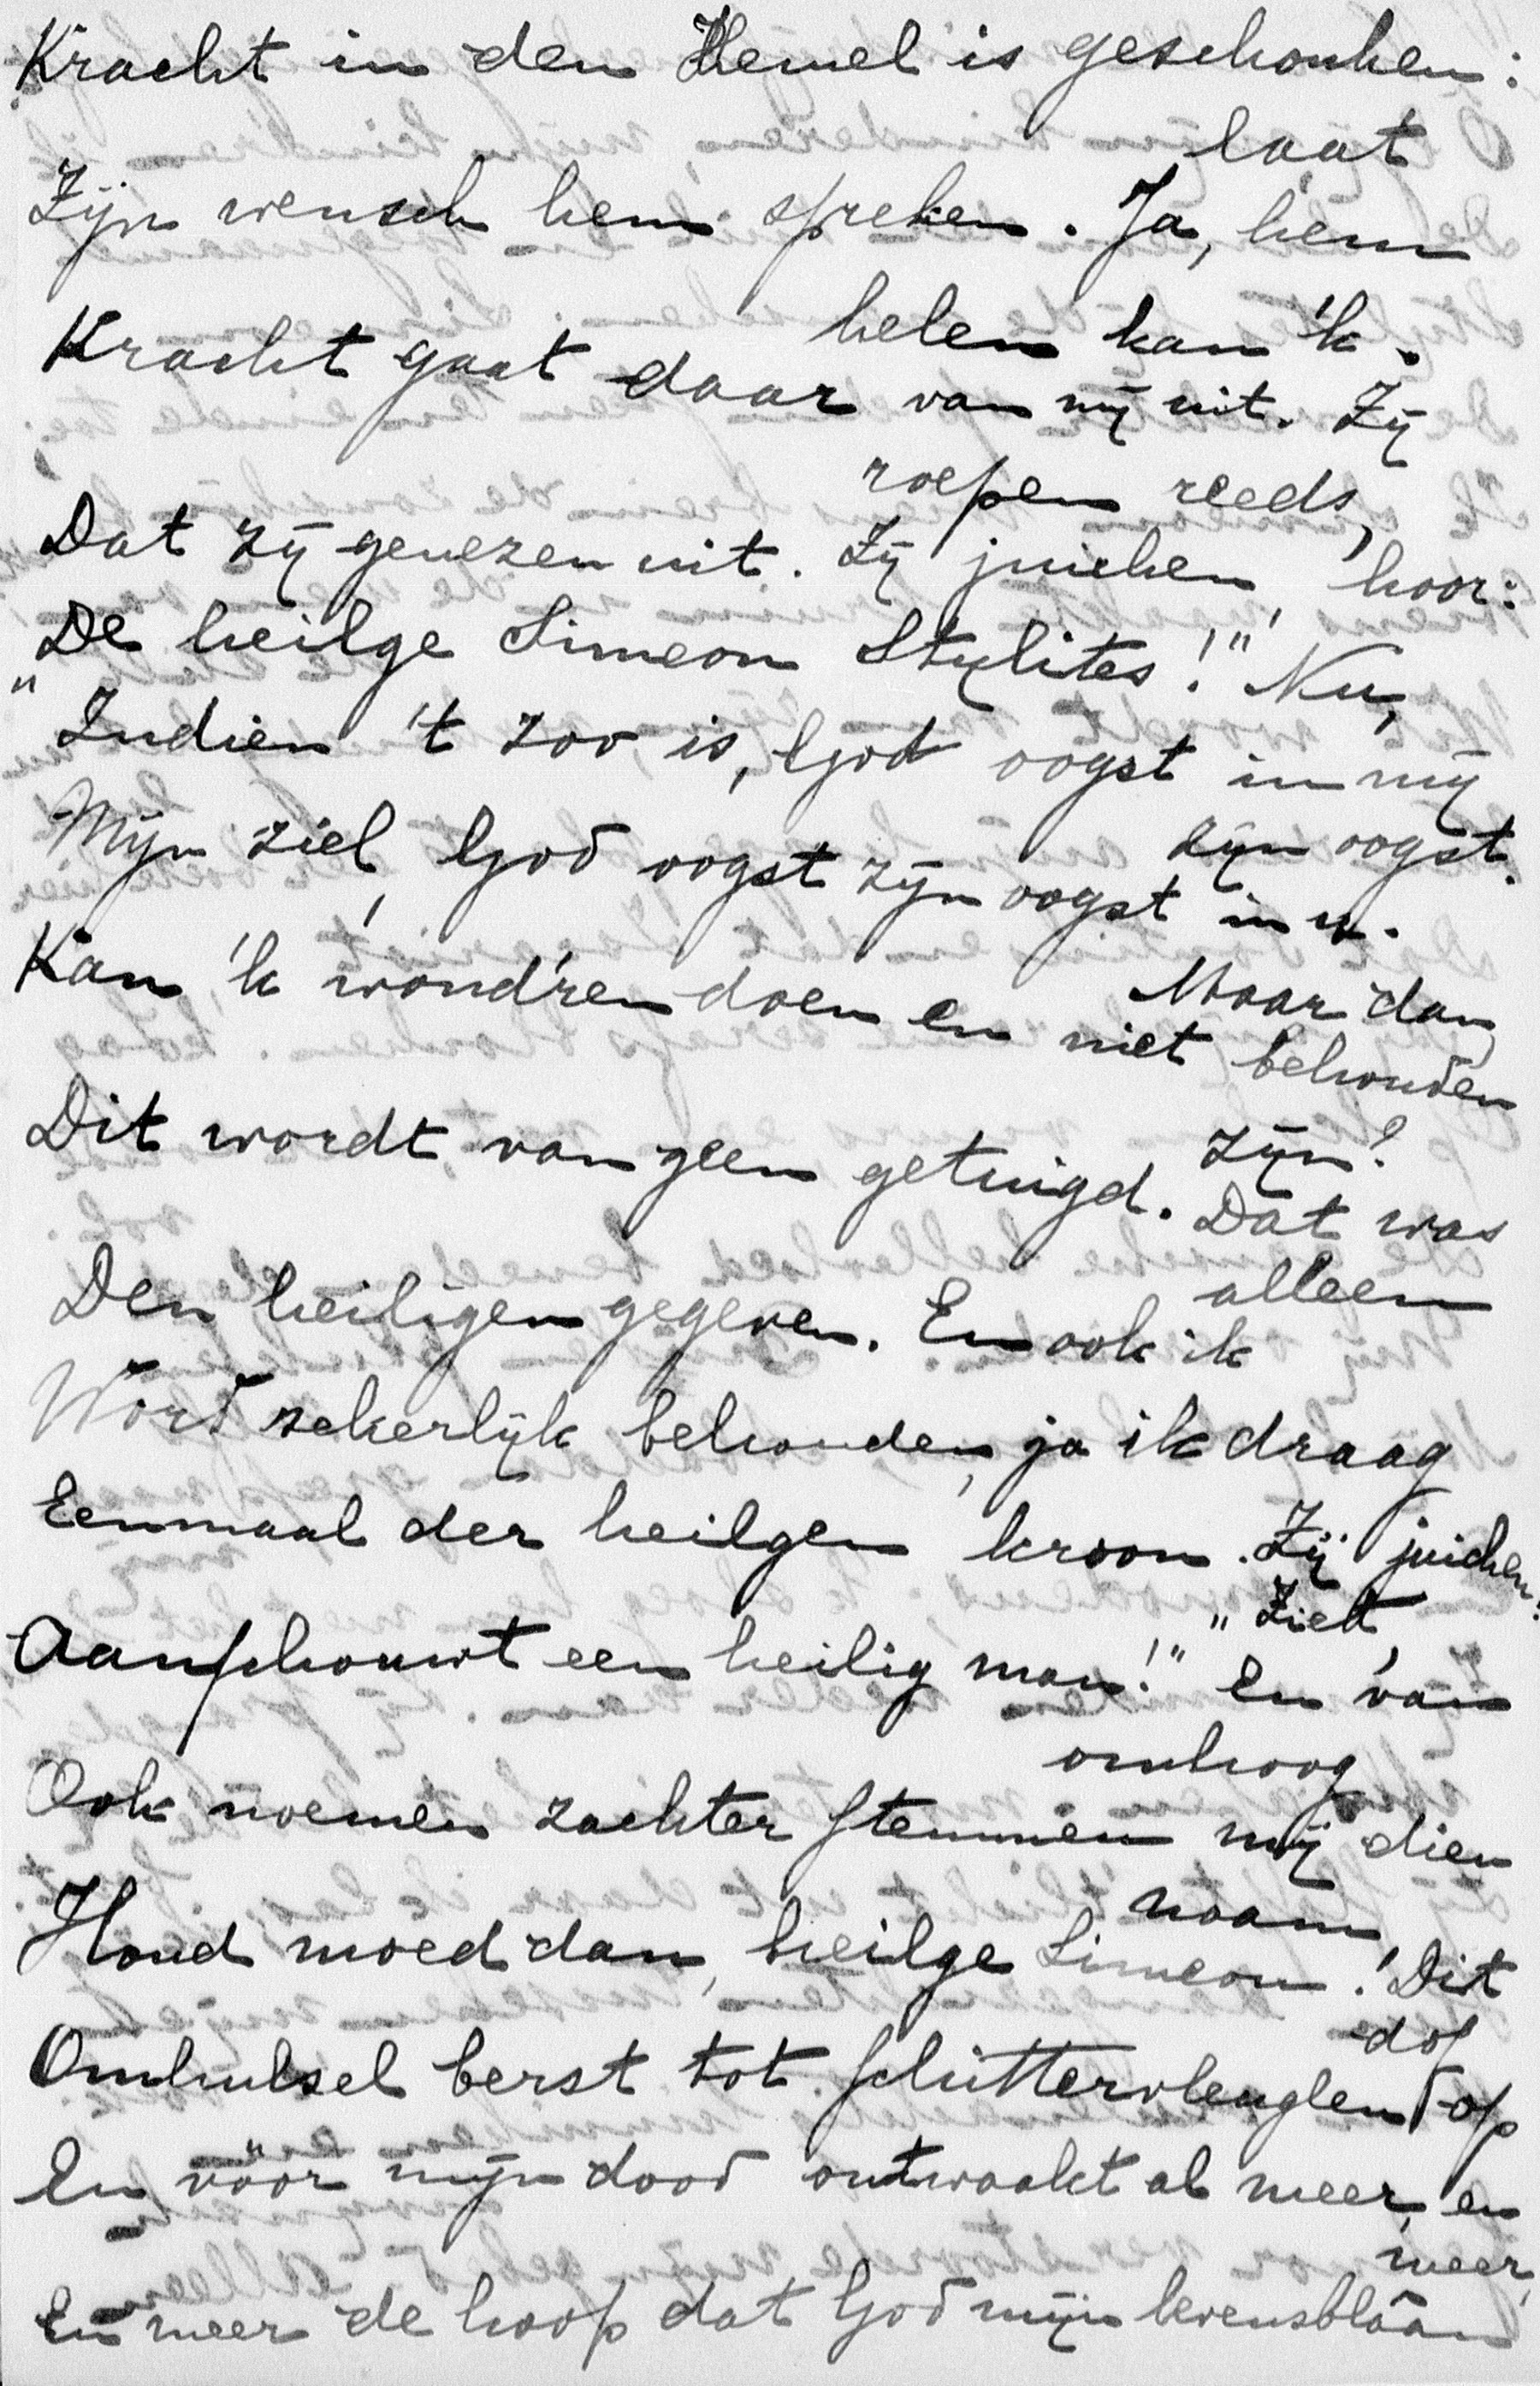 Kracht in den Hemel is geschonken:
laat
Zijn wensch hem spreken. Ja, hem
helen kan 'k.
Kracht gaat daar van mij uit. Zij
roepen reeds,
Dat zij genezen uit. Zij juichen, hoor:
"De heilge Simeon Stylites!" Nu,
"Indien 't zoo is, God oogst in mij
zijn oogst.
Mijn ziel, God oogst zijn oogst in u.
Maar dan,
Kan 'k wond'ren doen en niet behouden
zijn?
Dit wordt van geen getuigd. Dat was
alleen
Den heiligen gegeven. En ook ik
Word zekerlijk behouden, ja ik draag
Eenmaal der heilgen kroon. Zij juichen:
"Ziet,
Aanschouwt een heilig man!" En van
omhoog
Ook noemen zachter stemmen mij dien
naam,
Houd moed dan, heilge Simeon! Dit
dof
Omhulsel berst tot schittervleuglen op
En vóór mijn dood ontwaakt al meer, en
meer,
En meer de hoop dat God mijn levensblâan